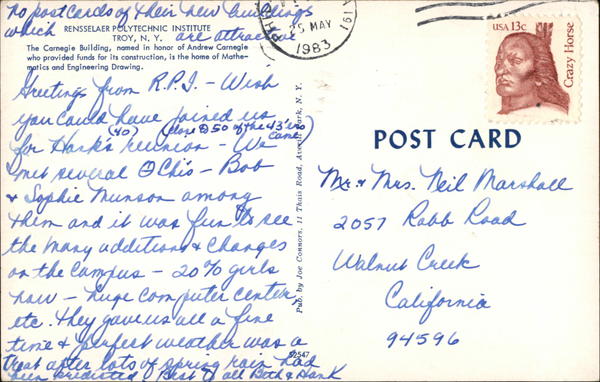 No postcards of their new buildings
which are attractive
RENSSELAER POLYTECHNIC INSTITUTE
TROY, N. Y.
The Carnegie Building, named in honor of Andrew Carnegie
who provided funds for its construction, is the home of Mathe-
matics and Engineering Drawing.
Greetings from R.P.I. - Wish
you could have joined us
(40) (close to 50 of the 43'ers
came)
for Hank's reunion - We
met several Θ Chi's - Bob
& Sophie Munson among
them and it was fun to see
the many additions & changes
on the campus - 20% girls
now - huge computer center,
etc. They gave us all a fine
time & perfect weather was a
treat after lots of spring rain had
been predicted Best to all Beth & Hank
Pub. by Joe Connors, 11 Thais Road, Averill Park, N. Y.
52547
MAY
1983
USA 13c
Crazy Horse
POST CARD
Mr. & Mrs. Neil Marshall
2057 Robb Road
Walnut Creek
California
94596